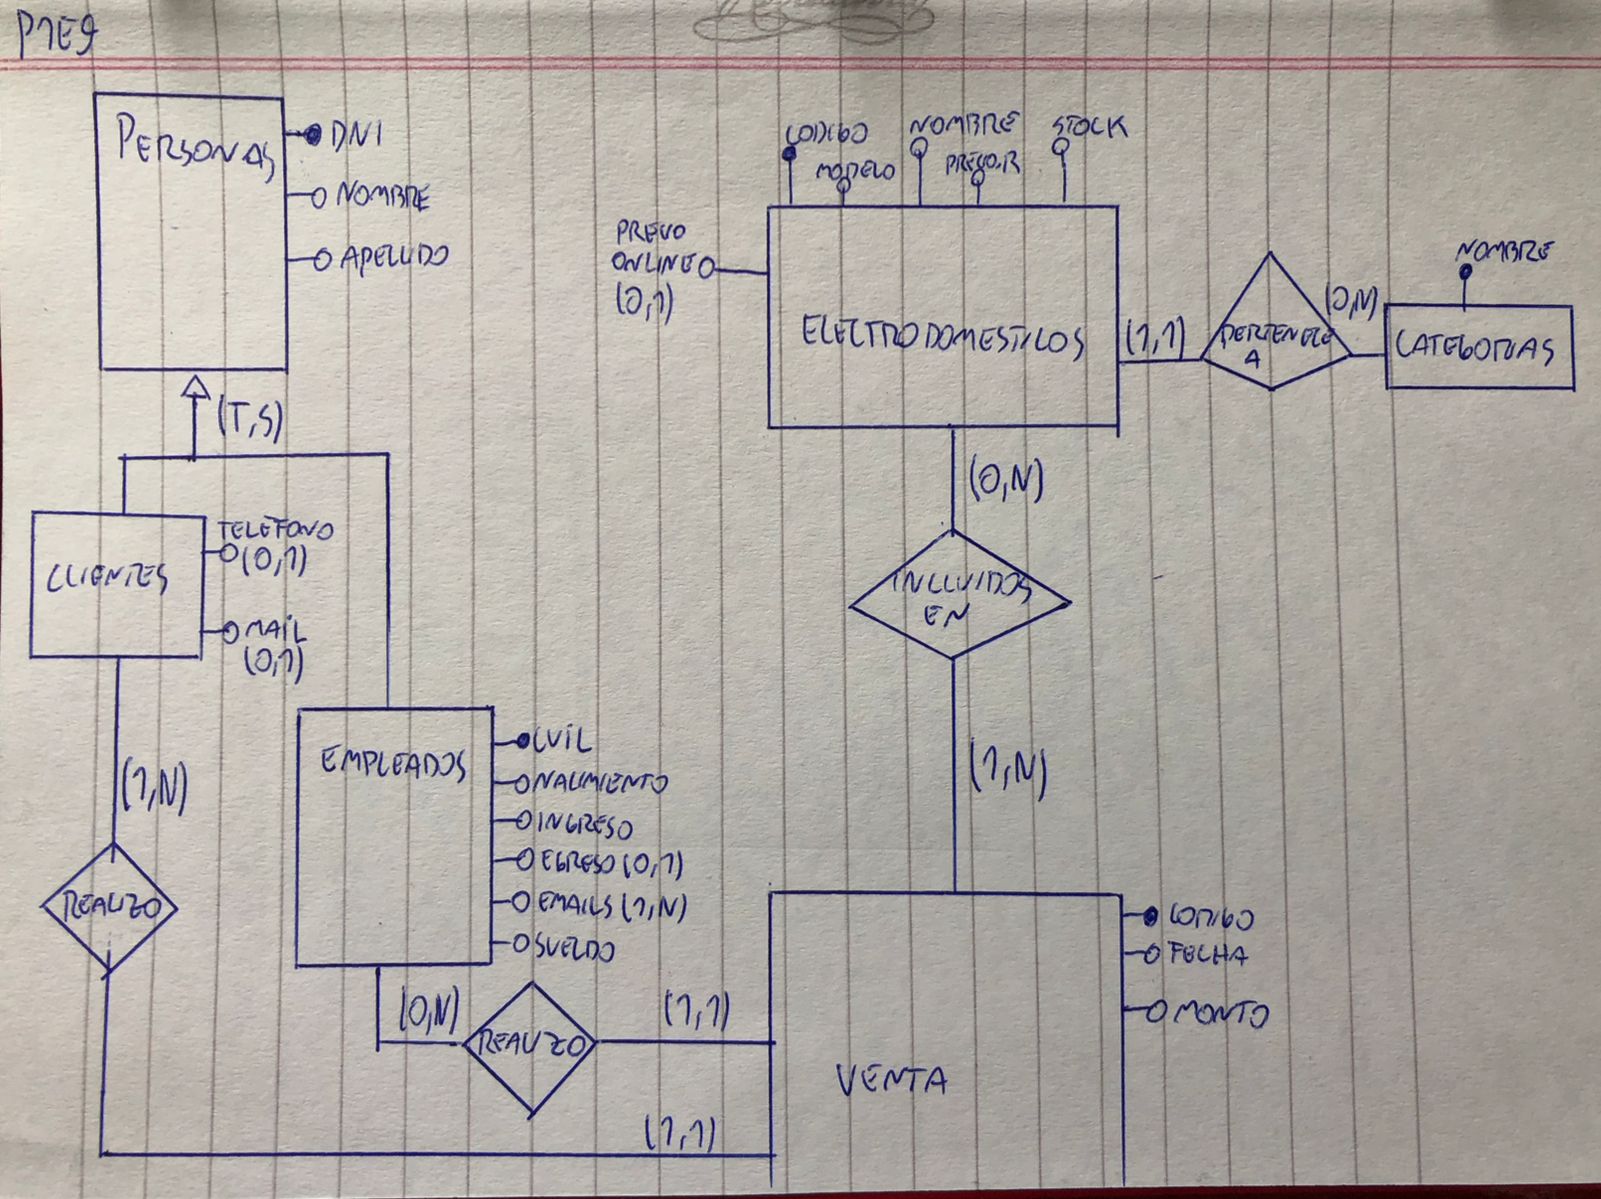 P1E9
PERSONAS
DNI
NOMBRE
APELLIDO
(T,S)
CLIENTES
TELEFONO
(0,1)
MAIL
(0,1)
(1,N)
REALIZO
EMPLEADOS
CUIL
NACIMIENTO
INGRESO
EGRESO (0,1)
EMAILS (1,N)
SUELDO
(0,N)
REALIZO
(1,1)
(1,1)
CODIGO
MODELO
NOMBRE
PRECIO.R
STOCK
PRECIO
ONLINE
(0,1)
ELECTRODOMESTICOS
(1,1)
PERTENECE
A
(0,N)
NOMBRE
CATEGORIAS
(0,N)
INCLUIDOS
EN
(1,N)
VENTA
CODIGO
FECHA
MONTO